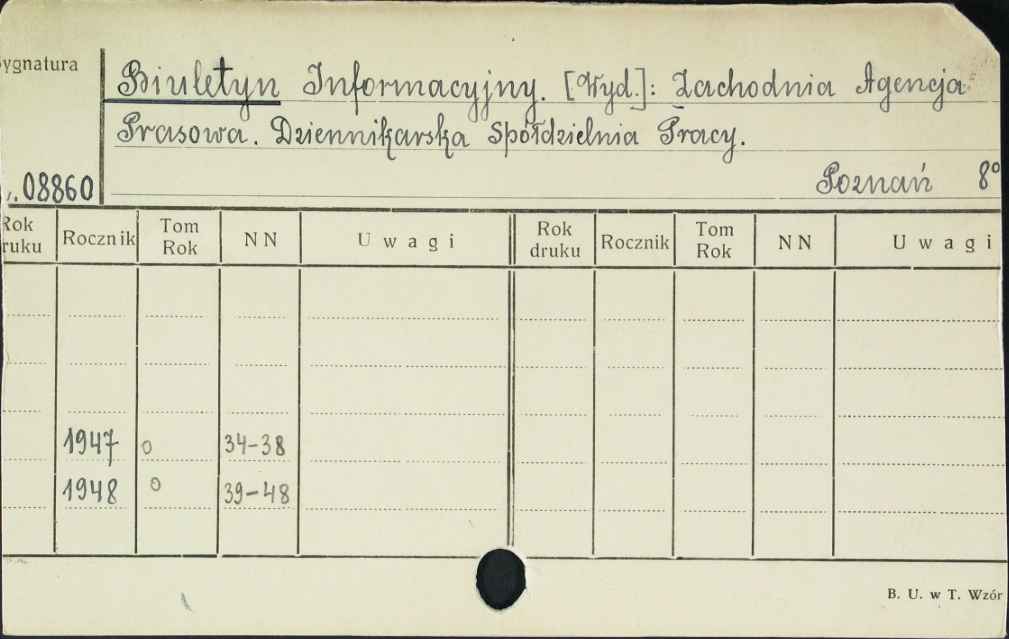 ygnatura
Biuletyn Informacyjny. [Wyd.]: Zachodnia Agencja
Prasowa. Dziennikarska Spółdzielnia Pracy.
.08860 Poznań 8°
Rok ruku Rocznik Tom Rok NN Uwagi Rok druku Rocznik Tom Rok NN Uwagi
1947 o 34-38
1948 o 39-48
B. U. w T. Wzór